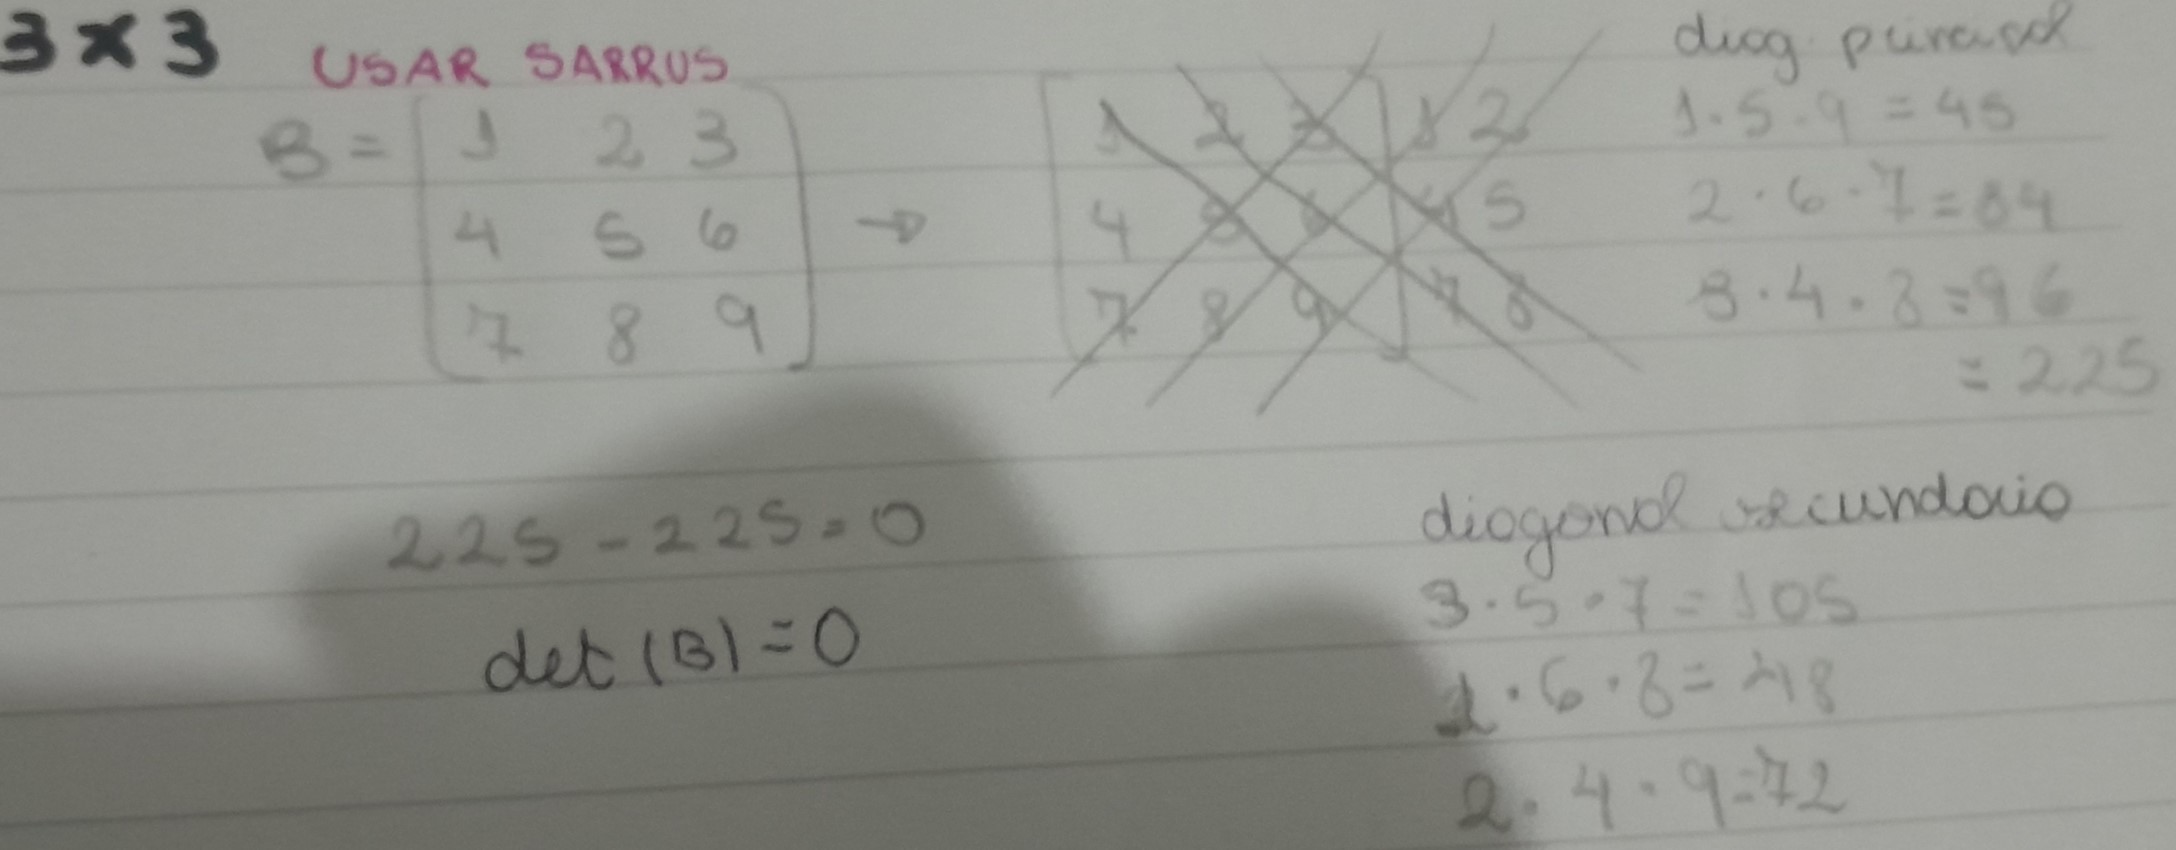 3 x 3 USAR SARRUS
B = [ 1 2 3
4 5 6
7 8 9 ]
→
[ 1 2 3 ] 1 2
4 5 6 4 5
7 8 9 7 8
diag.
1 · 5 · 9 = 45
2 · 6 · 7 = 84
3 · 4 · 8 = 96
= 225
225 - 225 = 0
det (B) = 0
diagonal secundario
3 · 5 · 7 = 105
1 · 6 · 8 = 48
2 · 4 · 9 = 72